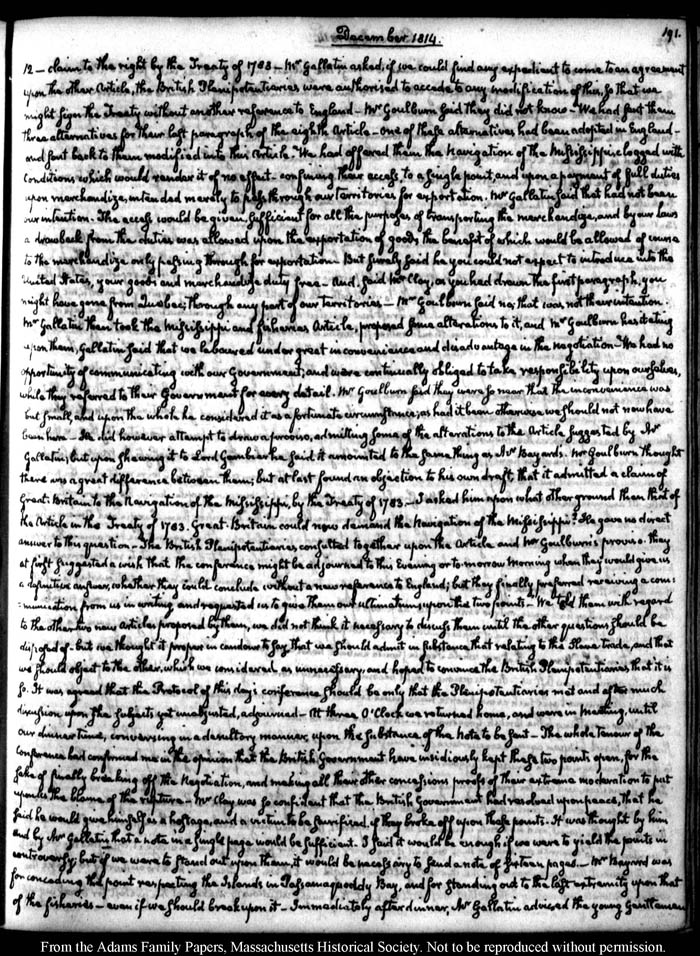 December 1814.
191.
12 — claim to the right by the Treaty of 1783 — Mr Gallatin asked, if we could find any expedient to come to an agreement
upon the other Article, the British Plenipotentiaries were authorised to accede to any modification of this, so that we
might sign the Treaty without another reference to England — Mr Goulburn said they did not know — We had sent them
three alternatives for their last paragraph of the eighth Article — one of these alternatives had been adopted in England —
and sent back to them modified into this Article. We had offered them the Navigation of the Mississippi clogged with
Conditions which would render it of no effect — confining their access, to a single point, and upon a payment of full duties
upon merchandize, intended merely to pass through our territories for exportation. Mr Gallatin said that had not been
our intention. The access would be given, sufficient for all the purposes of transporting the merchandize, and by our laws
a drawback from the duties was allowed upon the exportation of goods, the benefit of which would be allowed of course
to the merchandize only passing through for exportation — But surely said he you could not expect to introduce into the
United States, your goods and merchandize duty free — And, said Mr Clay, as you had drawn the first paragraph, you
might have gone from Quebec, through any part of our territories — Mr Goulburn said no; that was not their intention.
Mr Gallatin then took the Mississippi and fisheries Article, proposed some alterations to it, and Mr Goulburn hesitating
upon them, Gallatin said that we laboured under great inconvenience and disadvantage in the negotiation — We had no
opportunity of communicating with our Government; and were continually obliged to take responsibility upon ourselves,
while they referred to their Government for every detail. Mr Goulburn said they were so near that the inconvenience was
but small, and upon the whole he considered it as a fortunate circumstance; as had it been otherwise we should not now have
been here — He did however attempt to draw a proviso, admitting some of the alterations to the Article suggested by Mr
Gallatin; but upon shewing it to Lord Gambier he said it amounted to the same thing as Mr Bayard's. Mr Goulburn thought
there was a great difference between them; but at last found an objection to his own draft, that it admitted a claim of
Great-Britain to the Navigation of the Mississippi, by the Treaty of 1783 — I asked him upon what other ground than that of
the Article in the Treaty of 1783. Great-Britain could now demand the Navigation of the Mississippi? He gave no direct
answer to this question — The British Plenipotentiaries consulted together upon the Article and Mr Goulburn's proviso. They
at first suggested a wish that the conference might be adjourned to this Evening or to-morrow Morning when they would give us
a definitive answer, whether they could conclude without a new reference to England; but they finally preferred receiving a com:
:munication from us in writing and requested us to give them our ultimatum, upon the two points — We told them with regard
to the other two new articles proposed by them, we did not think it necessary to discuss them until the other questions should be
disposed of — but we thought it proper in candour to say, that we should admit in substance, that relating to the Slave trade, and that
we should object to the other, which we considered, as unnecessary, and hoped to convince the British Plenipotentiaries that it is
so. It was agreed that the Protocol of this day's conference should be only that the Plenipotentiaries met and after much
discussion upon the subjects yet unadjusted, adjourned — At three O'Clock we returned home, and were in meeting, until
our dinner time, conversing in a desultory manner, upon the substance of the Note to be sent — The whole tenour of the
Conference had confirmed me in the opinion that the British Government have insidiously kept these two points open, for the
sake of finally breaking off the Negotiation, and making all their other concessions proofs of their extreme moderation to put
upon us the blame of the rupture — Mr Clay was so confident that the British Government had resolved upon peace, that he
said he would give himself as a hostage, and a victim to be sacrificed, if they broke off upon these points. It was thought by him
and by Mr Gallatin that a note in a single page would be sufficient. I said it would be enough if we were to yield the points in
controversy, but if we were to stand out upon them, it would be necessary to send a note of sixteen pages — Mr Bayard was
for conceding the point respecting the Islands in Passamaquoddy Bay, and for standing out to the last extremity upon that
of the fisheries — even if we should break upon it — Immediately after dinner, Mr Gallatin advised the young Gentlemen
From the Adams Family Papers, Massachusetts Historical Society. Not to be reproduced without permission.